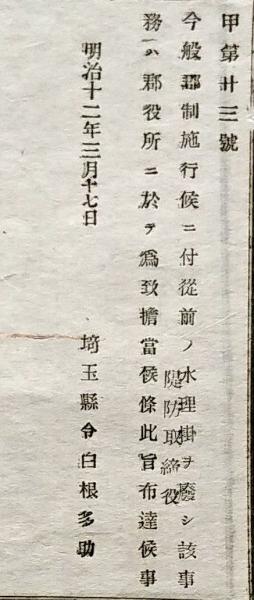 甲第廿三號
今般郡制施行候ニ付從前ノ水理掛ヲ廢シ該事
堤防取締役
務ハ郡役所ニ於テ爲致擔當候條此旨布達候事
明治十二年三月十七日 埼玉縣令白根多助